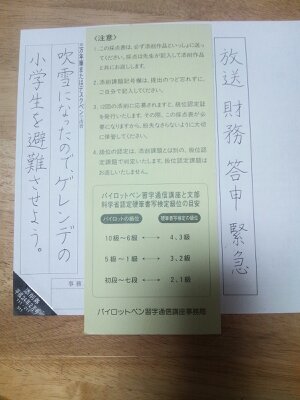 放送 財務 答申 緊急
<注意>
1.この採点書は、必ず添削作品といっしょに送っ
てください。採点は先生が記入して添削作品
と共にお返しします。
2.添削課題記号欄は、提出のつど忘れずに、
ご自分で記入してください。
3.12回の添削に応募されますと、級位認定証
を発行いたします。その際、この採点書が必
要になりますから、紛失なさらないように大切
に保管してください。
4.級位の認定は、添削課題とは別の、級位認
定課題で判定いたします。級位認定課題は
お返しいたしません。
パイロットペン習字通信講座と文部
科学省認定硬筆書写検定級位の目安
パイロットの級位
硬筆書写検定の級位
10級〜6級 ←→ 4、3級
5級〜1級 ←→ 3、2級
初段〜七段 ←→ 2、1級
パイロットペン習字通信講座事務局
吹雪になったので、ゲレンデの
小学生を避難させよう。
事務